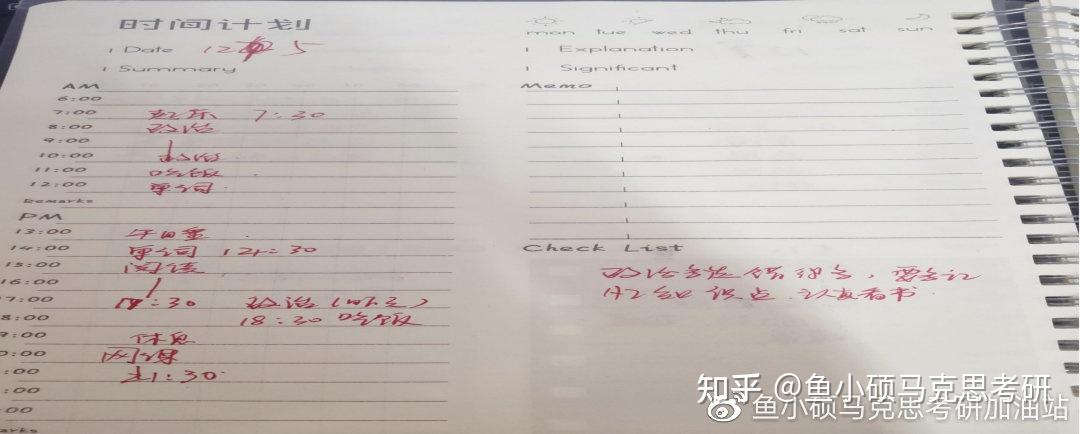 时间计划
Date 12 5
Summary
AM
6:00
7:00 起床 7:30
8:00 政治
9:00
10:00 政治
11:00 吃饭
12:00 单词
Remarks
PM
13:00 午睡
14:00 单词 14:30
15:00 阅读
16:00
17:00 17:30 政治（
8:00 18:30 吃饭
9:00 休息
0:00 网课
:00 21:30
:00
:00
arks
mon tue wed thu fri sat sun
Explanation
Significant
Memo
Check List
政治 错 ，要 记
知识点 认真看书
知乎 @鱼小硕马克思考研
@鱼小硕马克思考研加油站